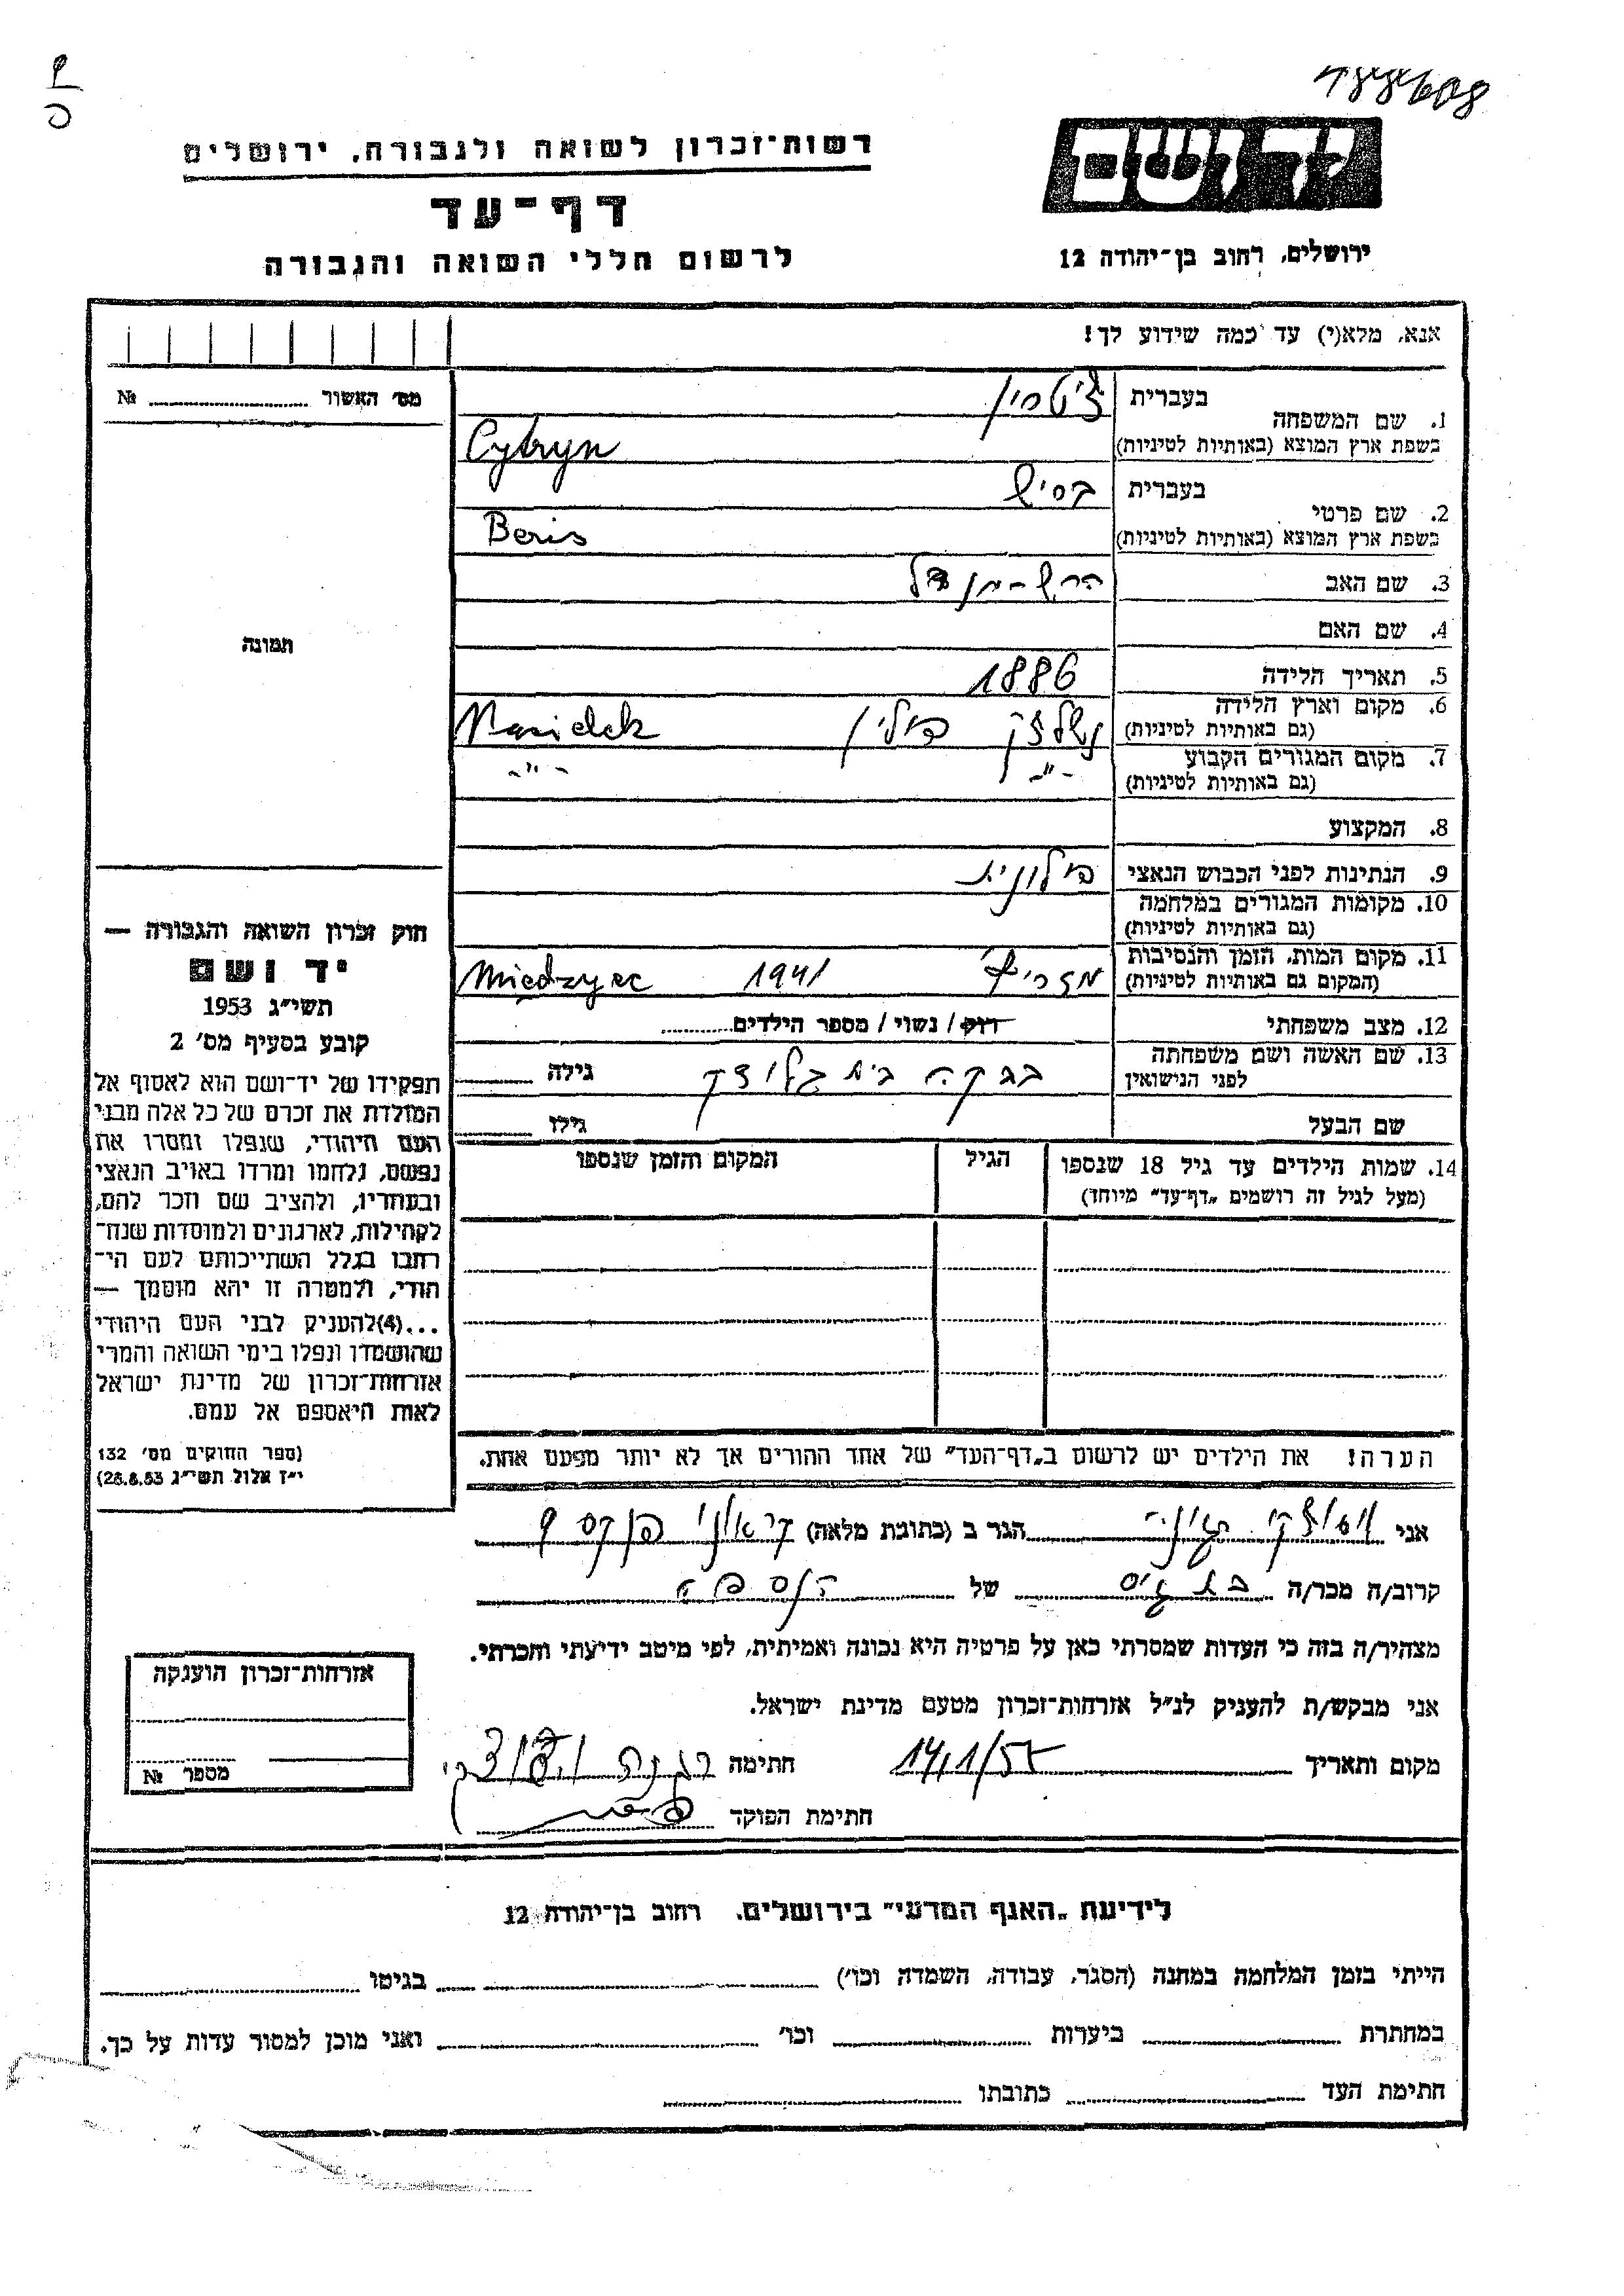 רשות־זכרון לשואה ולגבורה, ירושלים
דף־עד
לרשום חללי השואה והגבורה
יד ושם
ירושלים, רחוב בן־יהודה 12
אנא, מלא(י) עד כמה שידוע לך!
מס׳ האשור № 
תמונה
1. שם המשפחה בעברית ציטרין
בשפת ארץ המוצא (באותיות לטיניות) Cytryn
2. שם פרטי בעברית בריש
בשפת ארץ המוצא (באותיות לטיניות) Beris
3. שם האב הרש-מנדל
4. שם האם
5. תאריך הלידה 1886
6. מקום וארץ הלידה (גם באותיות לטיניות) פולין
7. מקום המגורים הקבוע (גם באותיות לטיניות) -״- -״-
8. המקצוע
9. הנתינות לפני הכבוש הנאצי פולונית
10. מקומות המגורים במלחמה (גם באותיות לטיניות)
11. מקום המות, הזמן והנסיבות (המקום גם באותיות לטיניות) מזריץ 1941 Międzyrzec
12. מצב משפחתי רוק / נשוי / מספר הילדים
13. שם האשה ושם משפחתה לפני הנישואין רבקה בית גילה
שם הבעל גילו
14. שמות הילדים עד גיל 18 שנספו (מעל לגיל זה רושמים „דף־עד״ מיוחד) הגיל המקום והזמן שנספו
הערה! את הילדים יש לרשום ב„דף־העד״ של אחד ההורים אך לא יותר מפעם אחת.
חוק זכרון השואה והגבורה —
יד ושם
תשי״ג 1953
קובע בסעיף מס׳ 2
תפקידו של יד־ושם הוא לאסוף אל
המולדת את זכרם של כל אלה מבני
העם היהודי, שנפלו ומסרו את
נפשם, נלחמו ומרדו באויב הנאצי
ובעוזריו, ולהציב שם וזכר להם,
לקהילות, לארגונים ולמוסדות שנח־
רבו בגלל השתייכותם לעם הי־
הודי, ולמטרה זו יהא מוסמך —
...(4)להעניק לבני העם היהודי
שהושמדו ונפלו בימי השואה והמרי
אזרחות־זכרון של מדינת ישראל
לאות היאספם אל עמם.
(ספר החוקים מס׳ 132
י״ז אלול תשי״ג 28.8.53)
אני הגר ב (כתובת מלאה)
קרוב/ה מכר/ה בת גיס של הנספה
מצהיר/ה בזה כי העדות שמסרתי כאן על פרטיה היא נכונה ואמיתית, לפי מיטב ידיעתי והכרתי.
אני מבקש/ת להעניק לנ״ל אזרחות־זכרון מטעם מדינת ישראל.
מקום ותאריך חתימה
חתימת הפוקד
אזרחות־זכרון הוענקה
מספר №
לידיעת „האגף המדעי״ בירושלים, רחוב בן־יהודה 12
הייתי בזמן המלחמה במחנה (הסגר, עבודה, השמדה וכו׳) בגיטו
במחתרת ביערות וכו׳ ואני מוכן למסור עדות על כך.
חתימת העד כתובתו